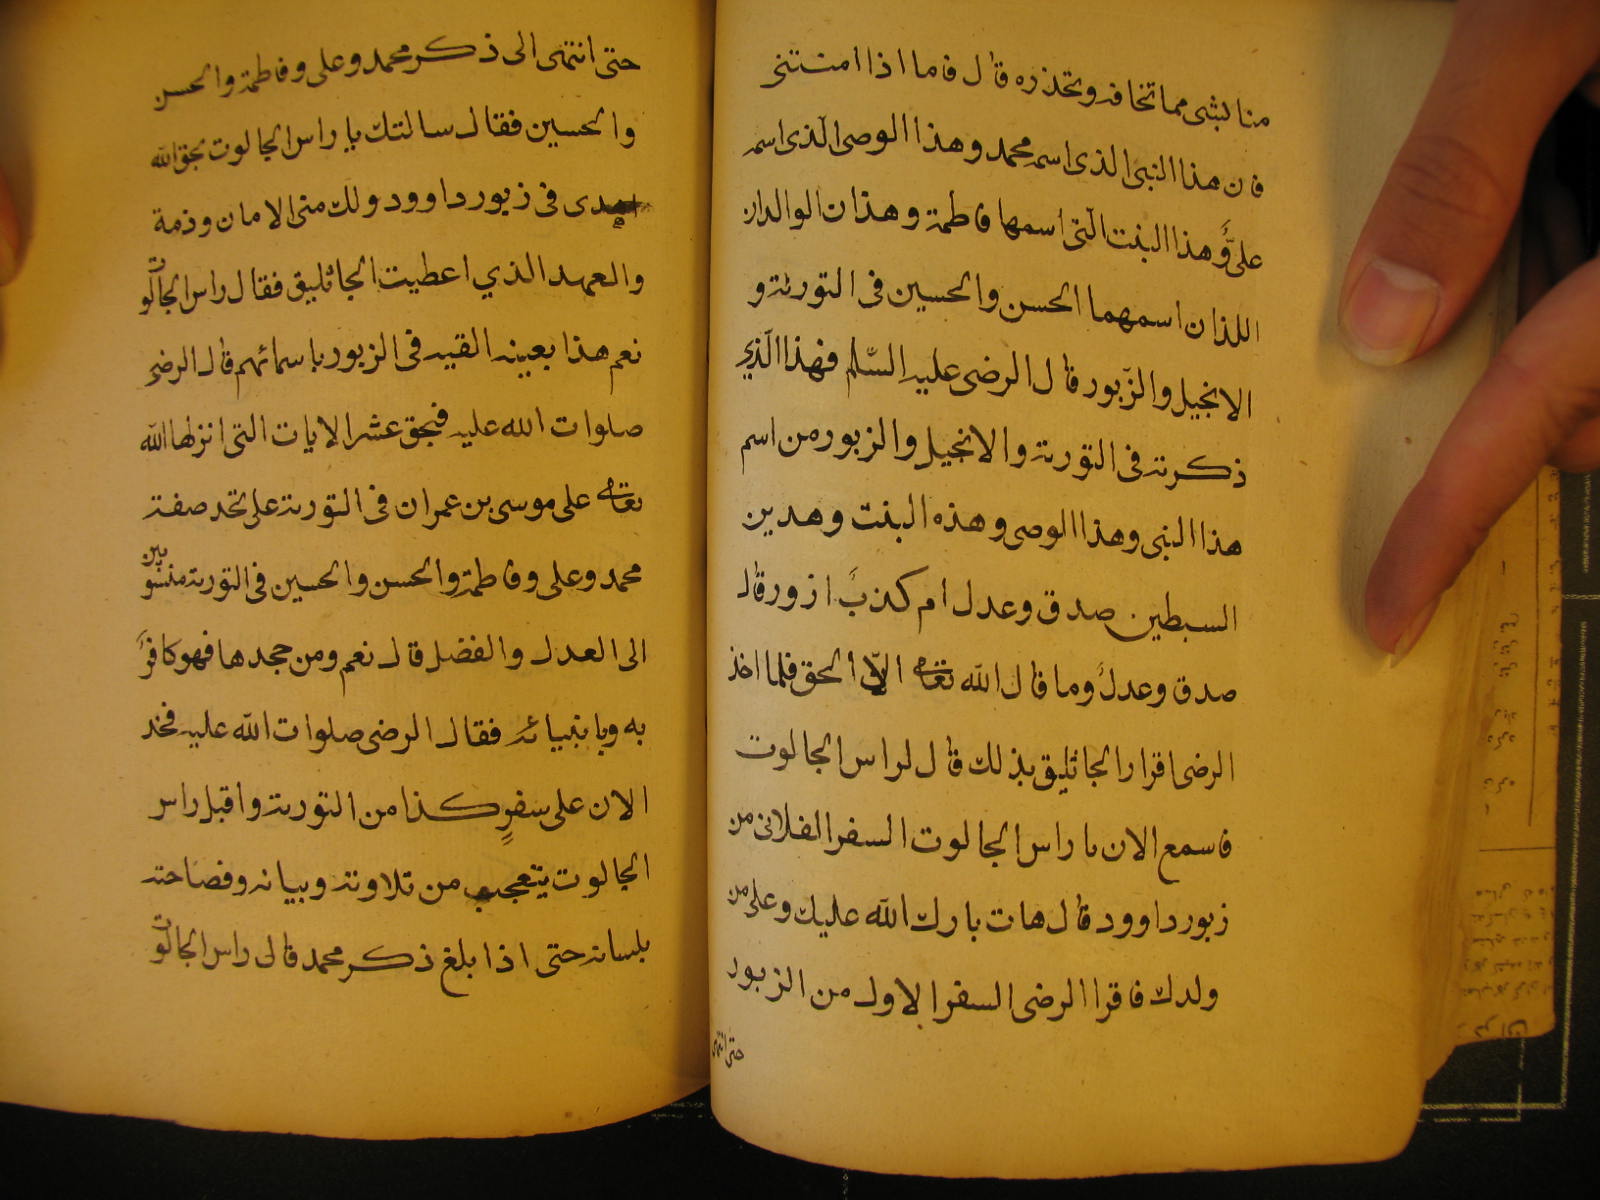 منا بشی مما تخافه وتحذره قال فاما اذا امنتنی
فان هذا النبی الذی اسمه محمد وهذا الوصی الّذی اسمه
علیٌّ وهذا البنت الّتی اسمها فاطمة وهذان الوالدان
اللذان اسمهما الحسن والحسین فی التوریٰة و
الانجیل والزّبور قال الرضی علیه السّلم فهذا الّذی
ذکرته فی التوریة والانجیل والزبور من اسم
هذا النبی وهذا الوصی وهذه البنت وهدین
السبطین صدق وعدل ام کذبٌ ازور قال
صدق وعدلٌ وما قال الله تعالی الّا الحق فلما اخذ
الرضی اقرار الجاثلیق بذلك قال لراس الجالوت
فاسمع الان یا راس الجالوت السفر الفلانی من
زبور داوود قال هات بارك الله علیك وعلی من
ولدك فاقرا الرضی السفر الاول من الزبور
حتی انتهی
حتی انتهی الی ذکر محمد وعلی وفاطمة والحسن
والحسین فقال سالتك یا راس الجالوت بحق الله
فی زبور داوود ولك منی الامان وذمة
والعهد الذي اعطیت الجاثلیق فقال راس الجالوت
نعم هذا بعینه القیه فی الزبور باسمائهم قال الرضی
صلوات الله علیه فبحق عشر الایات التی انزلها الله
تعالی علی موسی بن عمران فی التوریة علی تجد صفة
محمد وعلی وفاطمة والحسن والحسین فی التوریة منسوبین
الی العدل والفضل قال نعم ومن جحدها فهو کافرٌ
به وبانبیائه فقال الرضی صلوات الله علیه فخذ
الان علی سفرٍ کذا من التوریة واقبل راس
الجالوت یتعجب من تلاوته وبیانه وفصاحته
بلسانه حتی اذا بلغ ذکر محمد قال راس الجالوت